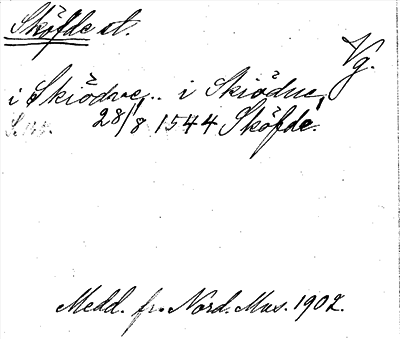 Sköfde st.
Vg.
i Skiödwe, .. i Skiödue,
28/8 1544 Sköfde.
Medd. fr. Nord. Mus. 1902.